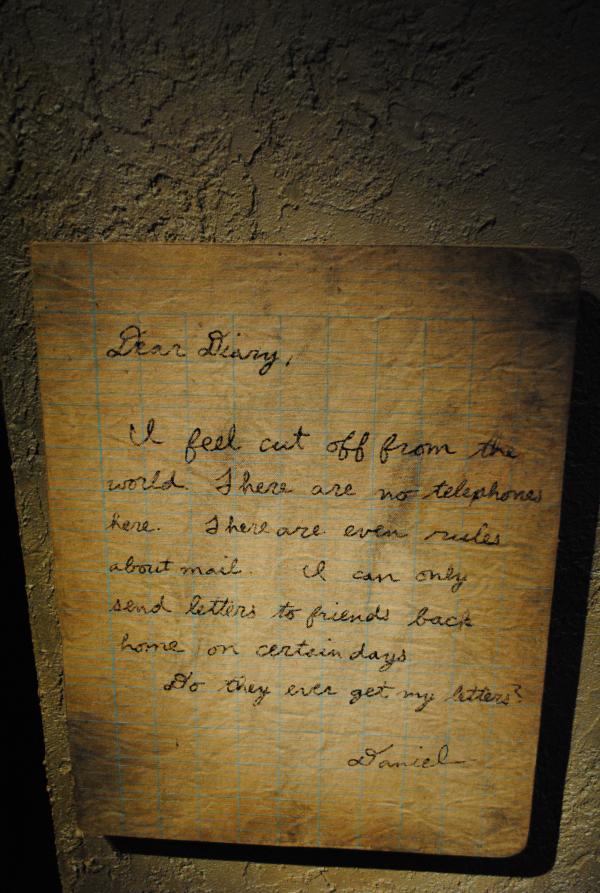 Dear Diary,
I feel cut off from the
world. There are no telephones
here. There are even rules
about mail. I can only
send letters to friends back
home on certain days
Do they ever get my letters?
Daniel